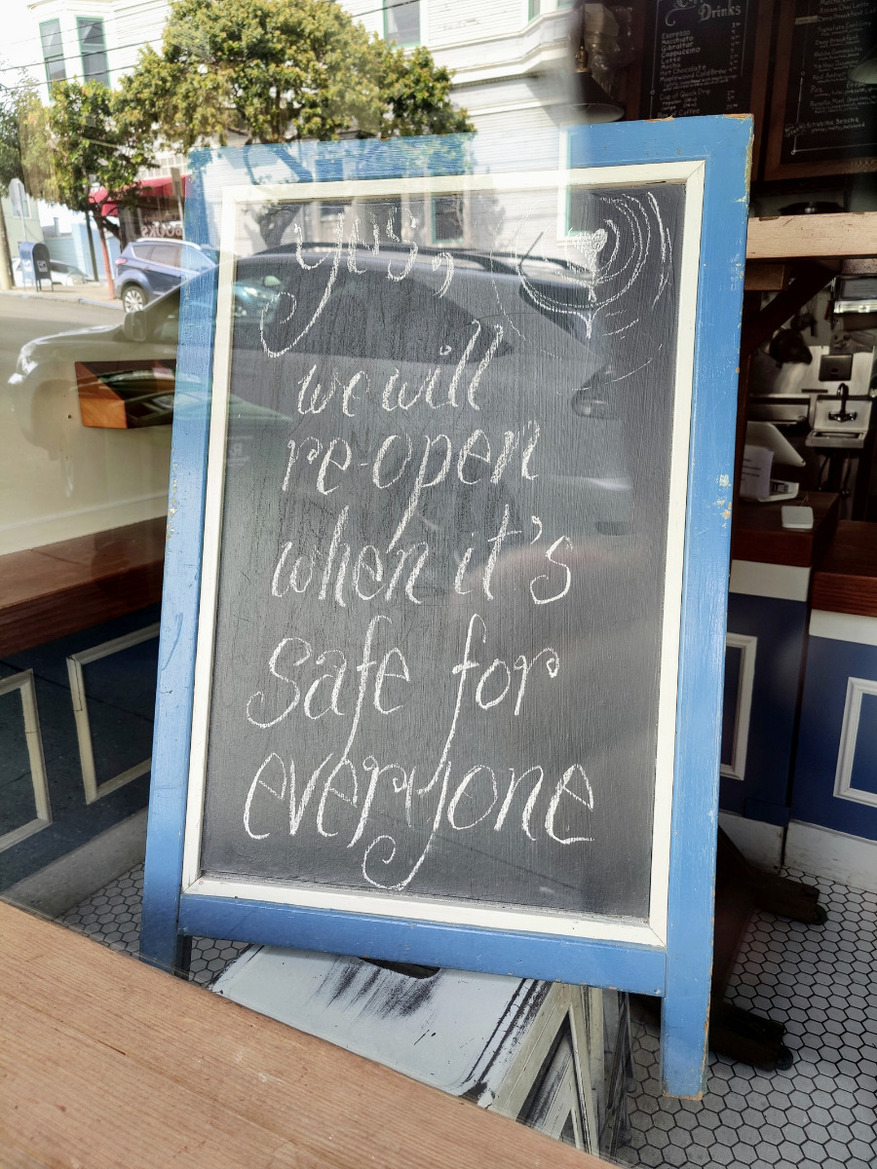 yes,
we will
re-open
when it's
safe for
everyone
Drinks
Espresso
Macchiato
Gibraltar
Cappuccino
Latte
Mocha
Hot Chocolate